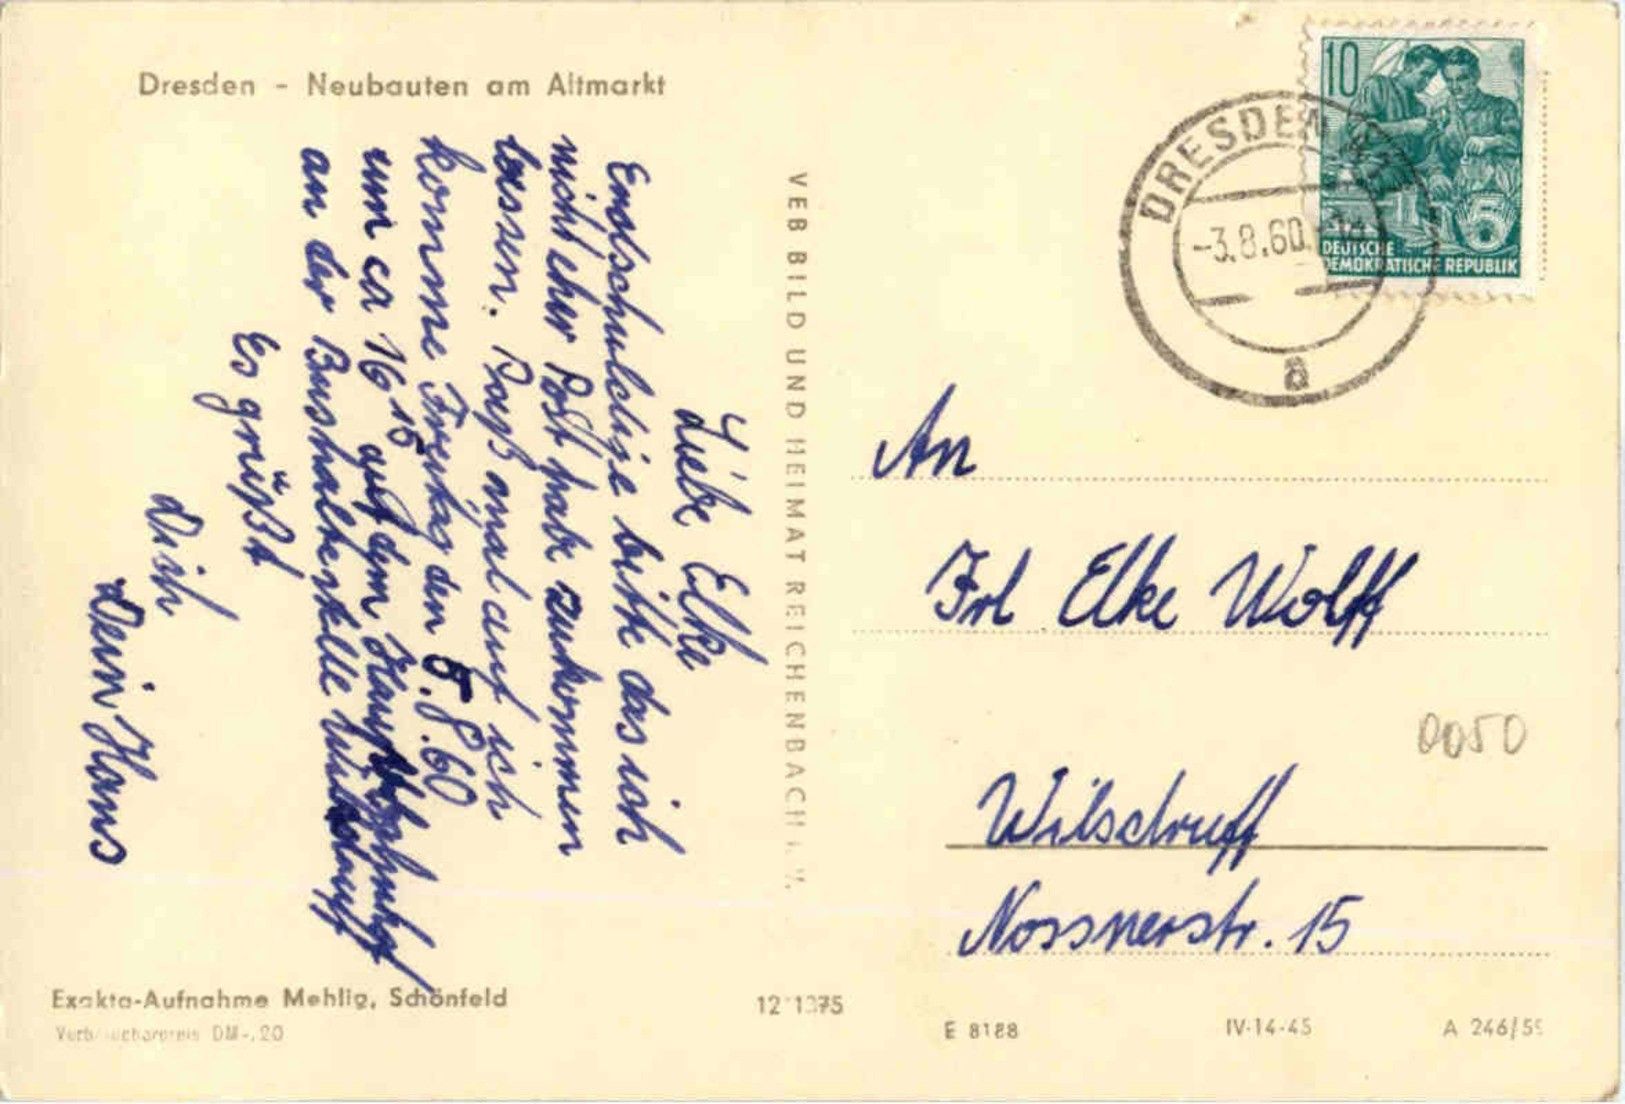 Dresden - Neubauten am Altmarkt
Liebe Elke
Endschuldige bitte das ich
nicht eher Post habe zukommen
lassen. Paß mal auf ich
komme Freitag den 5.8.60
um ca 16 15 auf dem
an der Bushaltestelle Wilsdruff
Es grüßt
Dich
Dein Hans
Exakta-Aufnahme Mehlig, Schönfeld
DM -.20
VEB BILD UND HEIMAT REICHENBACH i. V.
10
DEUTSCHE
DEMOKRATISCHE REPUBLIK
5
DRESDEN
-3.8.60
a
An
Frl Elke Wolff
0050
Wilsdruff
Nossnerstr. 15
E 8188
IV-14-45
A 246/59